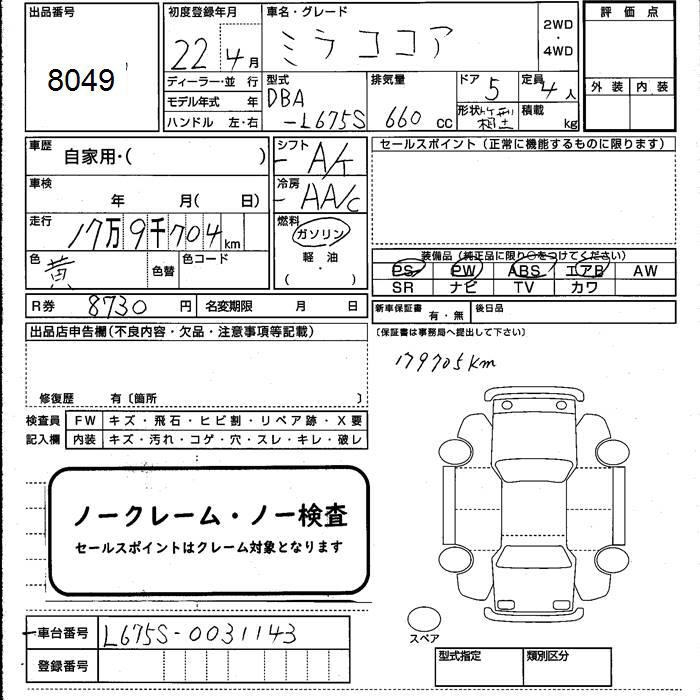 出品番号
8049
初度登録年月
22年4月
車名・グレード
ミラココア
2WD
・
4WD
ディーラー・並行
モデル年式 年
ハンドル 左・右
型式
DBA
-L675S
排気量
660 cc
ドア
5
定員
4人
形状
箱型
積載
kg
評価点
外装 内装
車歴
自家用・( )
車検
年 月( 日)
走行
17万9千704km
色
黄
色替
色コード
シフト
A/T
冷房
AA/C
燃料
ガソリン
軽油
( )
セールスポイント(正常に機能するものに限ります)
装備品(純正品に限り○をつけてください)
PS PW ABS エアB AW
SR ナビ TV カワ
R券 8730円 名変期限 月 日
新車保証書 有・無 後日品
(保証書は事務局へ提出して下さい)
出品店申告欄(不良内容・欠品・注意事項等記載)
修復歴 有〔箇所 〕
179705km
検査員
記入欄
FW キズ・飛石・ヒビ割・リペア跡・X要
内装 キズ・汚れ・コゲ・穴・スレ・キレ・破レ
ノークレーム・ノー検査
セールスポイントはクレーム対象となります
車台番号 L675S-0031143
登録番号
スペア
型式指定 類別区分